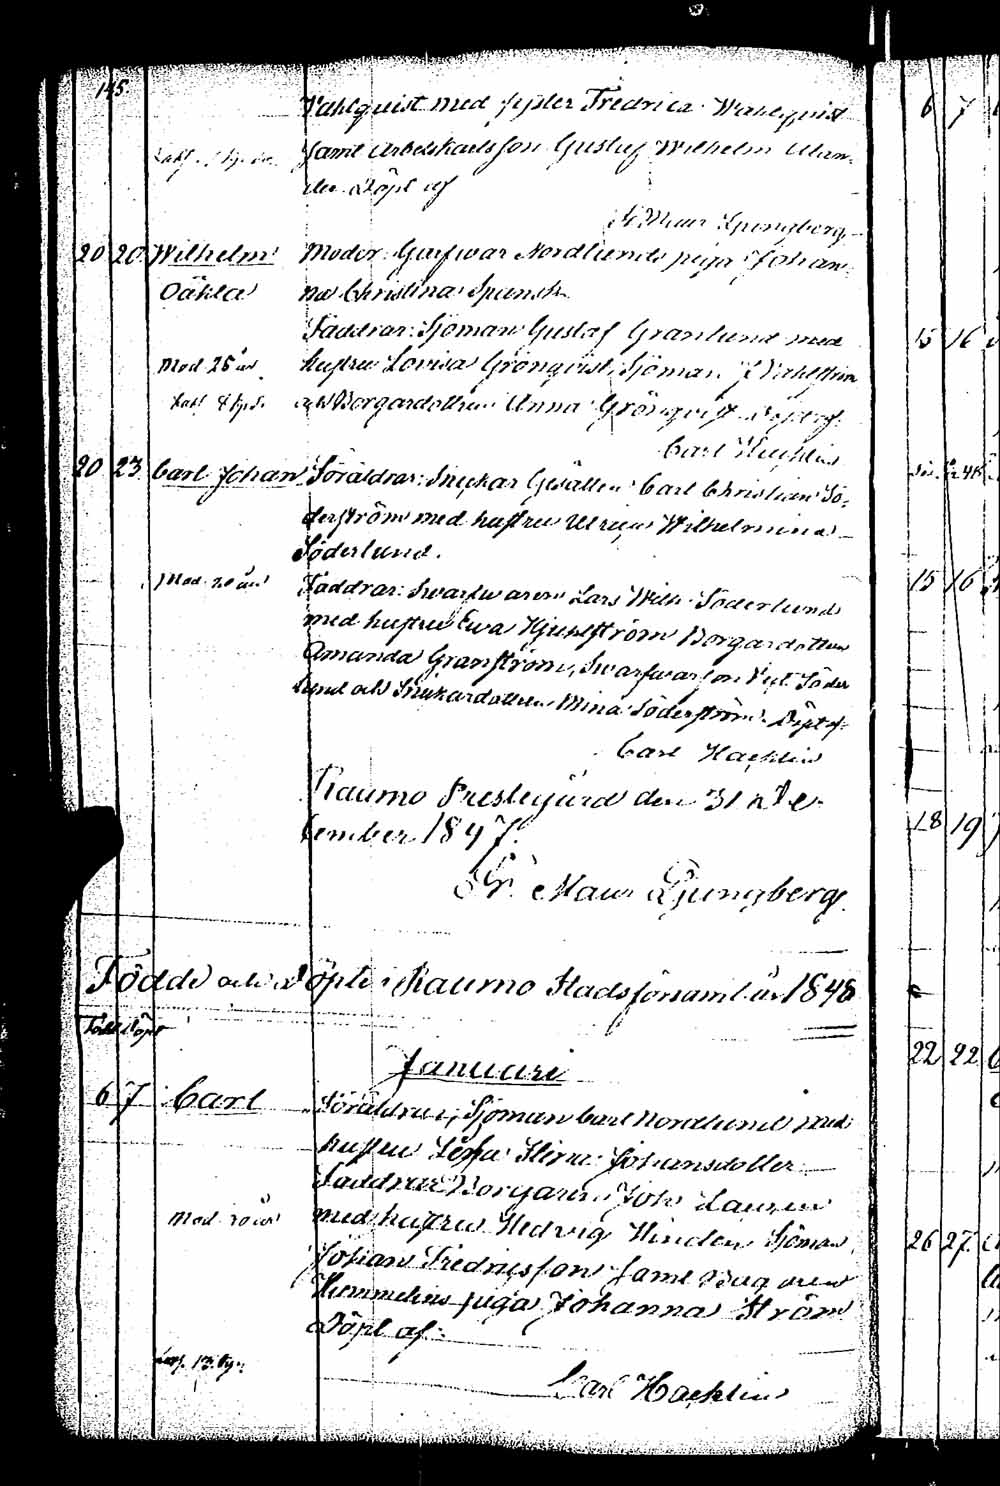 145.
Wahlquist med syster Fredrica Wahlquist
samt Arbetskarlsson Gustaf Wilhelm
Döpt af
Fr. Maur Ljungberg
20 20. Wilhelm Moder: Garfwar Nordlunds piga Johan-
Oäkta na Christina Spansk.
Faddrar: Sjöman Gustaf Granlund med
Mod. 25 år hustru Lovisa Grönqvist, Sjöman
och Borgardottren Anna Grönqvist Döpt af
Carl Hacklin
20 23. Carl Johan Föräldrar: Snickar Gesällen Carl Christian Sö-
derström med hustru Ulrica Wilhelmina
Söderlund.
Mod. 20 år Faddrar: Swarfwaren Lars Wilh. Söderlund
med hustru Ewa Hjuhlström Borgardottren
Amanda Granström, Swarfwarson Söder
lund och Snickardottren Mina Söderström. Döpt af
Carl Hacklin
Raumo Prestegård den 31 De-
cember 1847.
Fr. Maur Ljungberg
Födde och Döpte i Raumo Stadsförsaml. år 1848
Född Döpt
Januari
6 7 Carl Föräldrar, Sjöman Carl Nordlund med
hustru Johansdotter
Faddrar: Borgaren Joh. Lauren
Mod. 20 år med hustru Hedvig Hinden Sjöman
Johan Fredricsson samt
Hummelins piga Johanna Ström
Döpt af
Carl Hacklin
6 7
15 16
15 16
18 19
22 22
26 27.